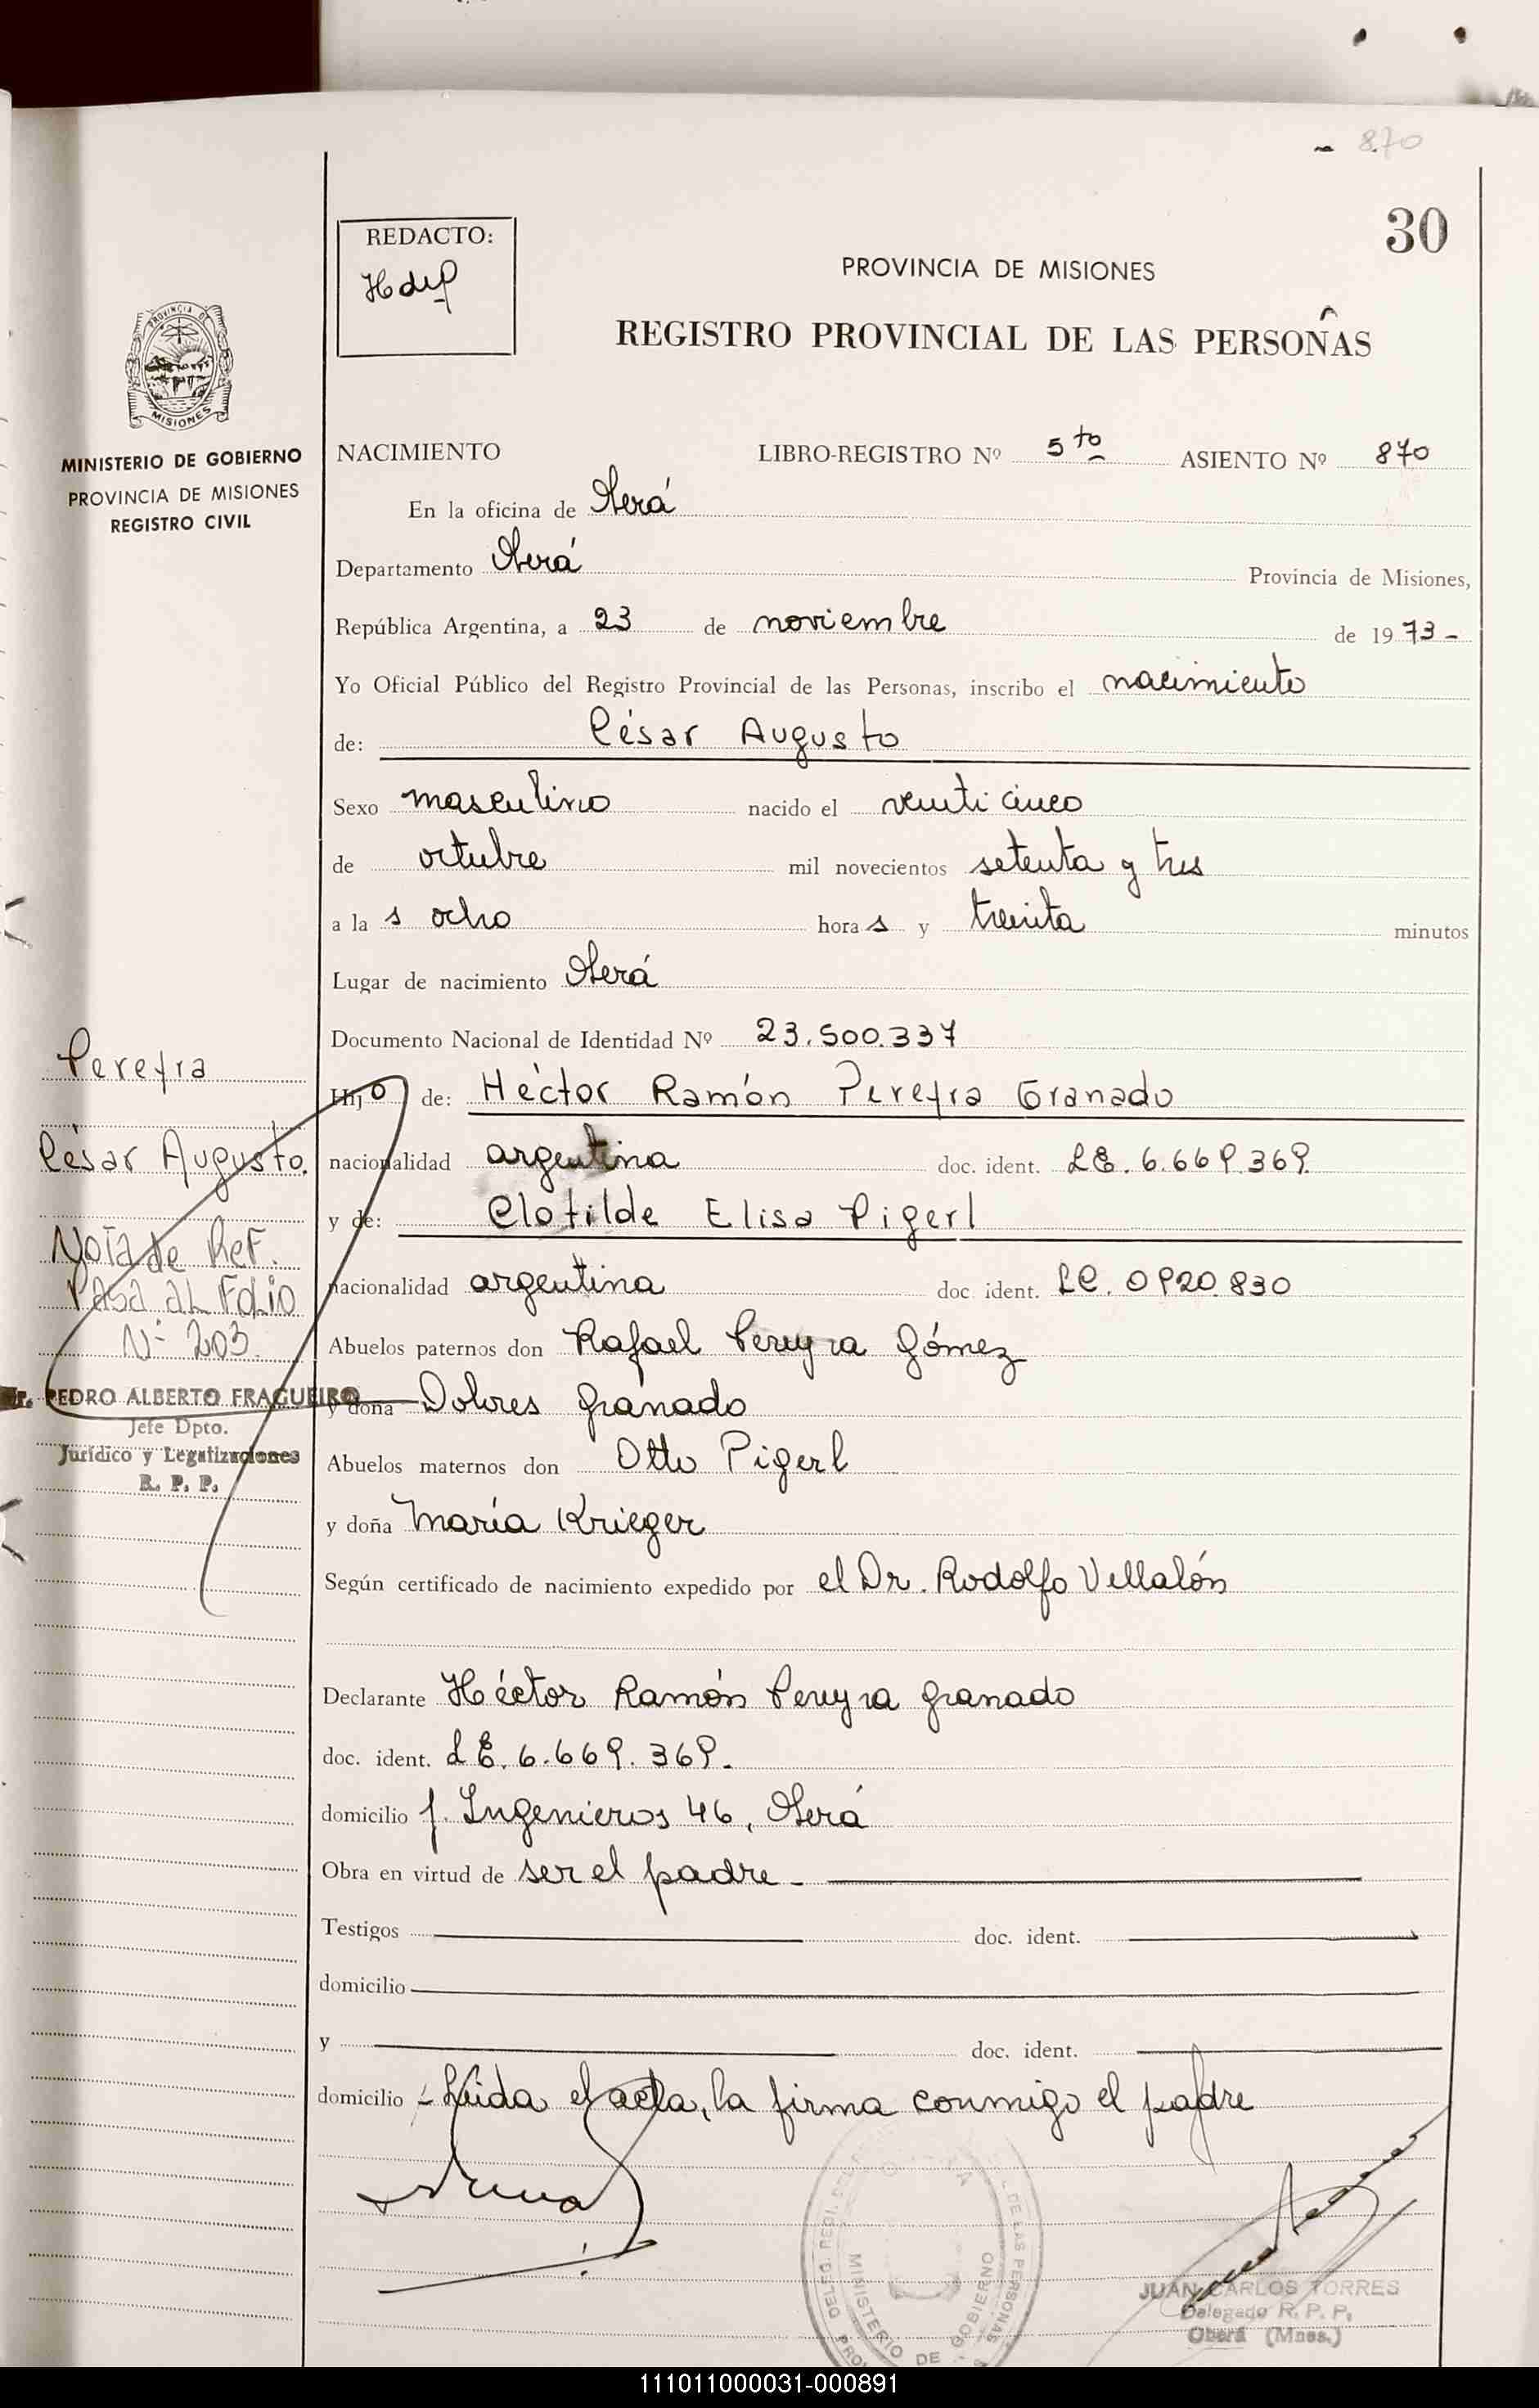 870
30
REDACTO:
PROVINCIA DE MISIONES
REGISTRO PROVINCIAL DE LAS PERSONAS
PROVINCIA DE
MISIONES
MINISTERIO DE GOBIERNO
PROVINCIA DE MISIONES
REGISTRO CIVIL
NACIMIENTO LIBRO-REGISTRO Nº 5to ASIENTO Nº 870
En la oficina de Oberá
Departamento Oberá Provincia de Misiones,
República Argentina, a 23 de noviembre de 1973-
Yo Oficial Público del Registro Provincial de las Personas, inscribo el nacimiento
de: César Augusto
Sexo masculino nacido el veinticinco
de octubre mil novecientos setenta y tres
a las ocho horas y treinta minutos
Lugar de nacimiento Oberá
Documento Nacional de Identidad Nº 23.500.337
Hijo de: Héctor Ramón Pereyra Granado
nacionalidad argentina doc. ident. LE. 6.669.369.
y de: Clotilde Elisa Pigerl
nacionalidad argentina doc ident. LC. 0920.830
Abuelos paternos don Rafael Pereyra Gómez
y doña Dolores Granado
Abuelos maternos don Otto Pigerl
y doña María Krieger
Según certificado de nacimiento expedido por el Dr. Rodolfo Villalón
Declarante Héctor Ramón Pereyra Granado
doc. ident. LE. 6.669.369.
domicilio J. Ingenieros 46, Oberá
Obra en virtud de ser el padre-
Testigos doc. ident.
domicilio
y doc. ident.
domicilio - Leída el acta, la firma conmigo el padre
Pereyra
César Augusto.
Nota de Ref.
Pasa al Folio
Nº 203.
PEDRO ALBERTO FRAGUEIRO
Jefe Dpto.
Jurídico y Legalizaciones
R. P. P.
MINISTERIO DE GOBIERNO
DE LAS PERSONAS
JUAN CARLOS TORRES
Delegado R. P. P.
Oberá (Mnes.)
111011000031-000891